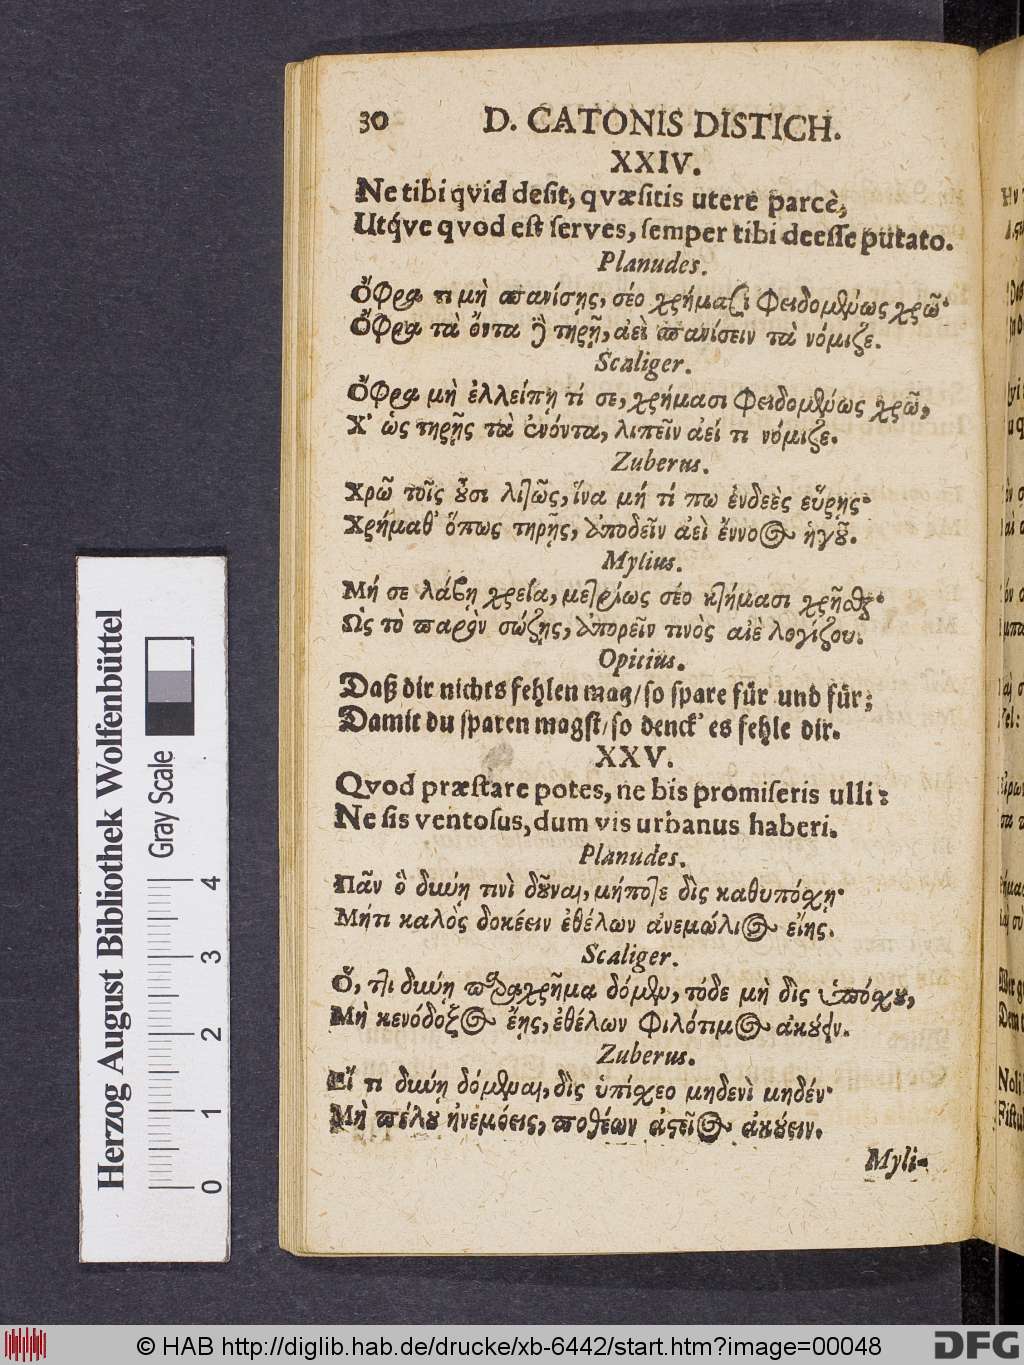 30 D. CATONIS DISTICH.
XXIV.
Ne tibi qvid desit, qvæsitis utere parcè,
Utq́ve qvod est serves, semper tibi deesse putato.
Planudes.
Ὄφρα τι μὴ σπανίσῃς, σέο χρήμασι φειδομένως χρῶ·
Ὄφρα τὰ ὄντα ἢ τηρῇ, ἀεὶ σπανίσειν τὰ νόμιζε.
Scaliger.
Ὄφρα μὴ ἐλλείπῃ τί σε, χρήμασι φειδομένως χρῶ,
Χ' ὡς τηρῇς τὰ ἐνόντα, λιπεῖν ἀεί τι νόμιζε.
Zuberus.
Χρῶ τοῖς οὖσι λιτῶς, ἵνα μή τί πω ἐνδεὲς εὕρῃς·
Χρήμαθ' ὅπως τηρῇς, ἀποδεῖν ἀεὶ ἔννοος ἡγοῦ.
Mylius.
Μή σε λάβῃ χρεία, μετρίως σέο κτήμασι χρῆσθαι·
Ὡς τὸ παρὸν σώζῃς, ἀπορεῖν τινὸς αἰὲ λογίζου.
Opitius.
Daß dir nichts fehlen mag/ so spare für und für;
Damit du sparen magst/ so denck' es fehle dir.
XXV.
Qvod præstare potes, ne bis promiseris ulli:
Ne sis ventosus, dum vis urbanus haberi.
Planudes.
Πᾶν ὃ δύνῃ τινὶ δοῦναι, μήποτε δὶς καθυπόσχῃ·
Μήτι καλός δοκέειν ἐθέλων ἀνεμώλιος εἴης.
Scaliger.
Ὅ, τι δύνῃ παραχρῆμα δόμεν, τόδε μὴ δὶς ὑπόσχου,
Μὴ κενόδοξος ἔῃς, ἐθέλων φιλότιμος ἀκούειν.
Zuberus.
Εἴ τι δύνῃ δόμεναι, δὶς ὑπίσχεο μηδενὶ μηδέν·
Μὴ πέλου ἠνεμόεις, ποθέων ἀστεῖος ἀκούειν.
Myli-
Herzog August Bibliothek Wolfenbüttel
Gray Scale
0 1 2 3 4
© HAB http://diglib.hab.de/drucke/xb-6442/start.htm?image=00048
DFG